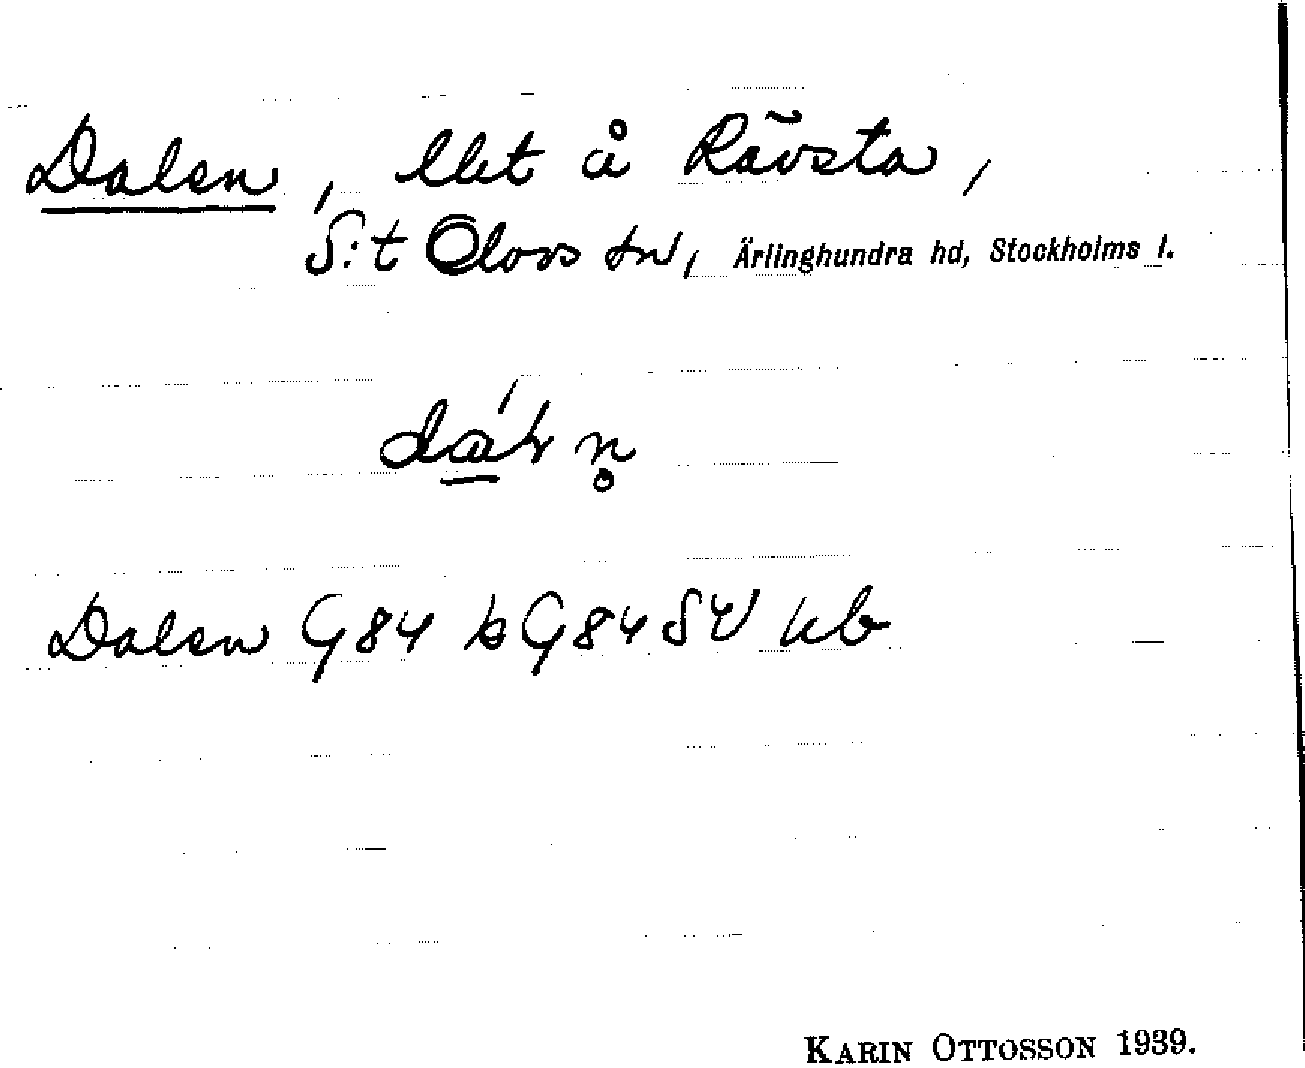 Dalen, llet å Rävsta,
S:t Olovs sn, Ärlinghundra hd, Stockholms l.
Dalen G 84 G 84 SV
KARIN OTTOSSON 1939.